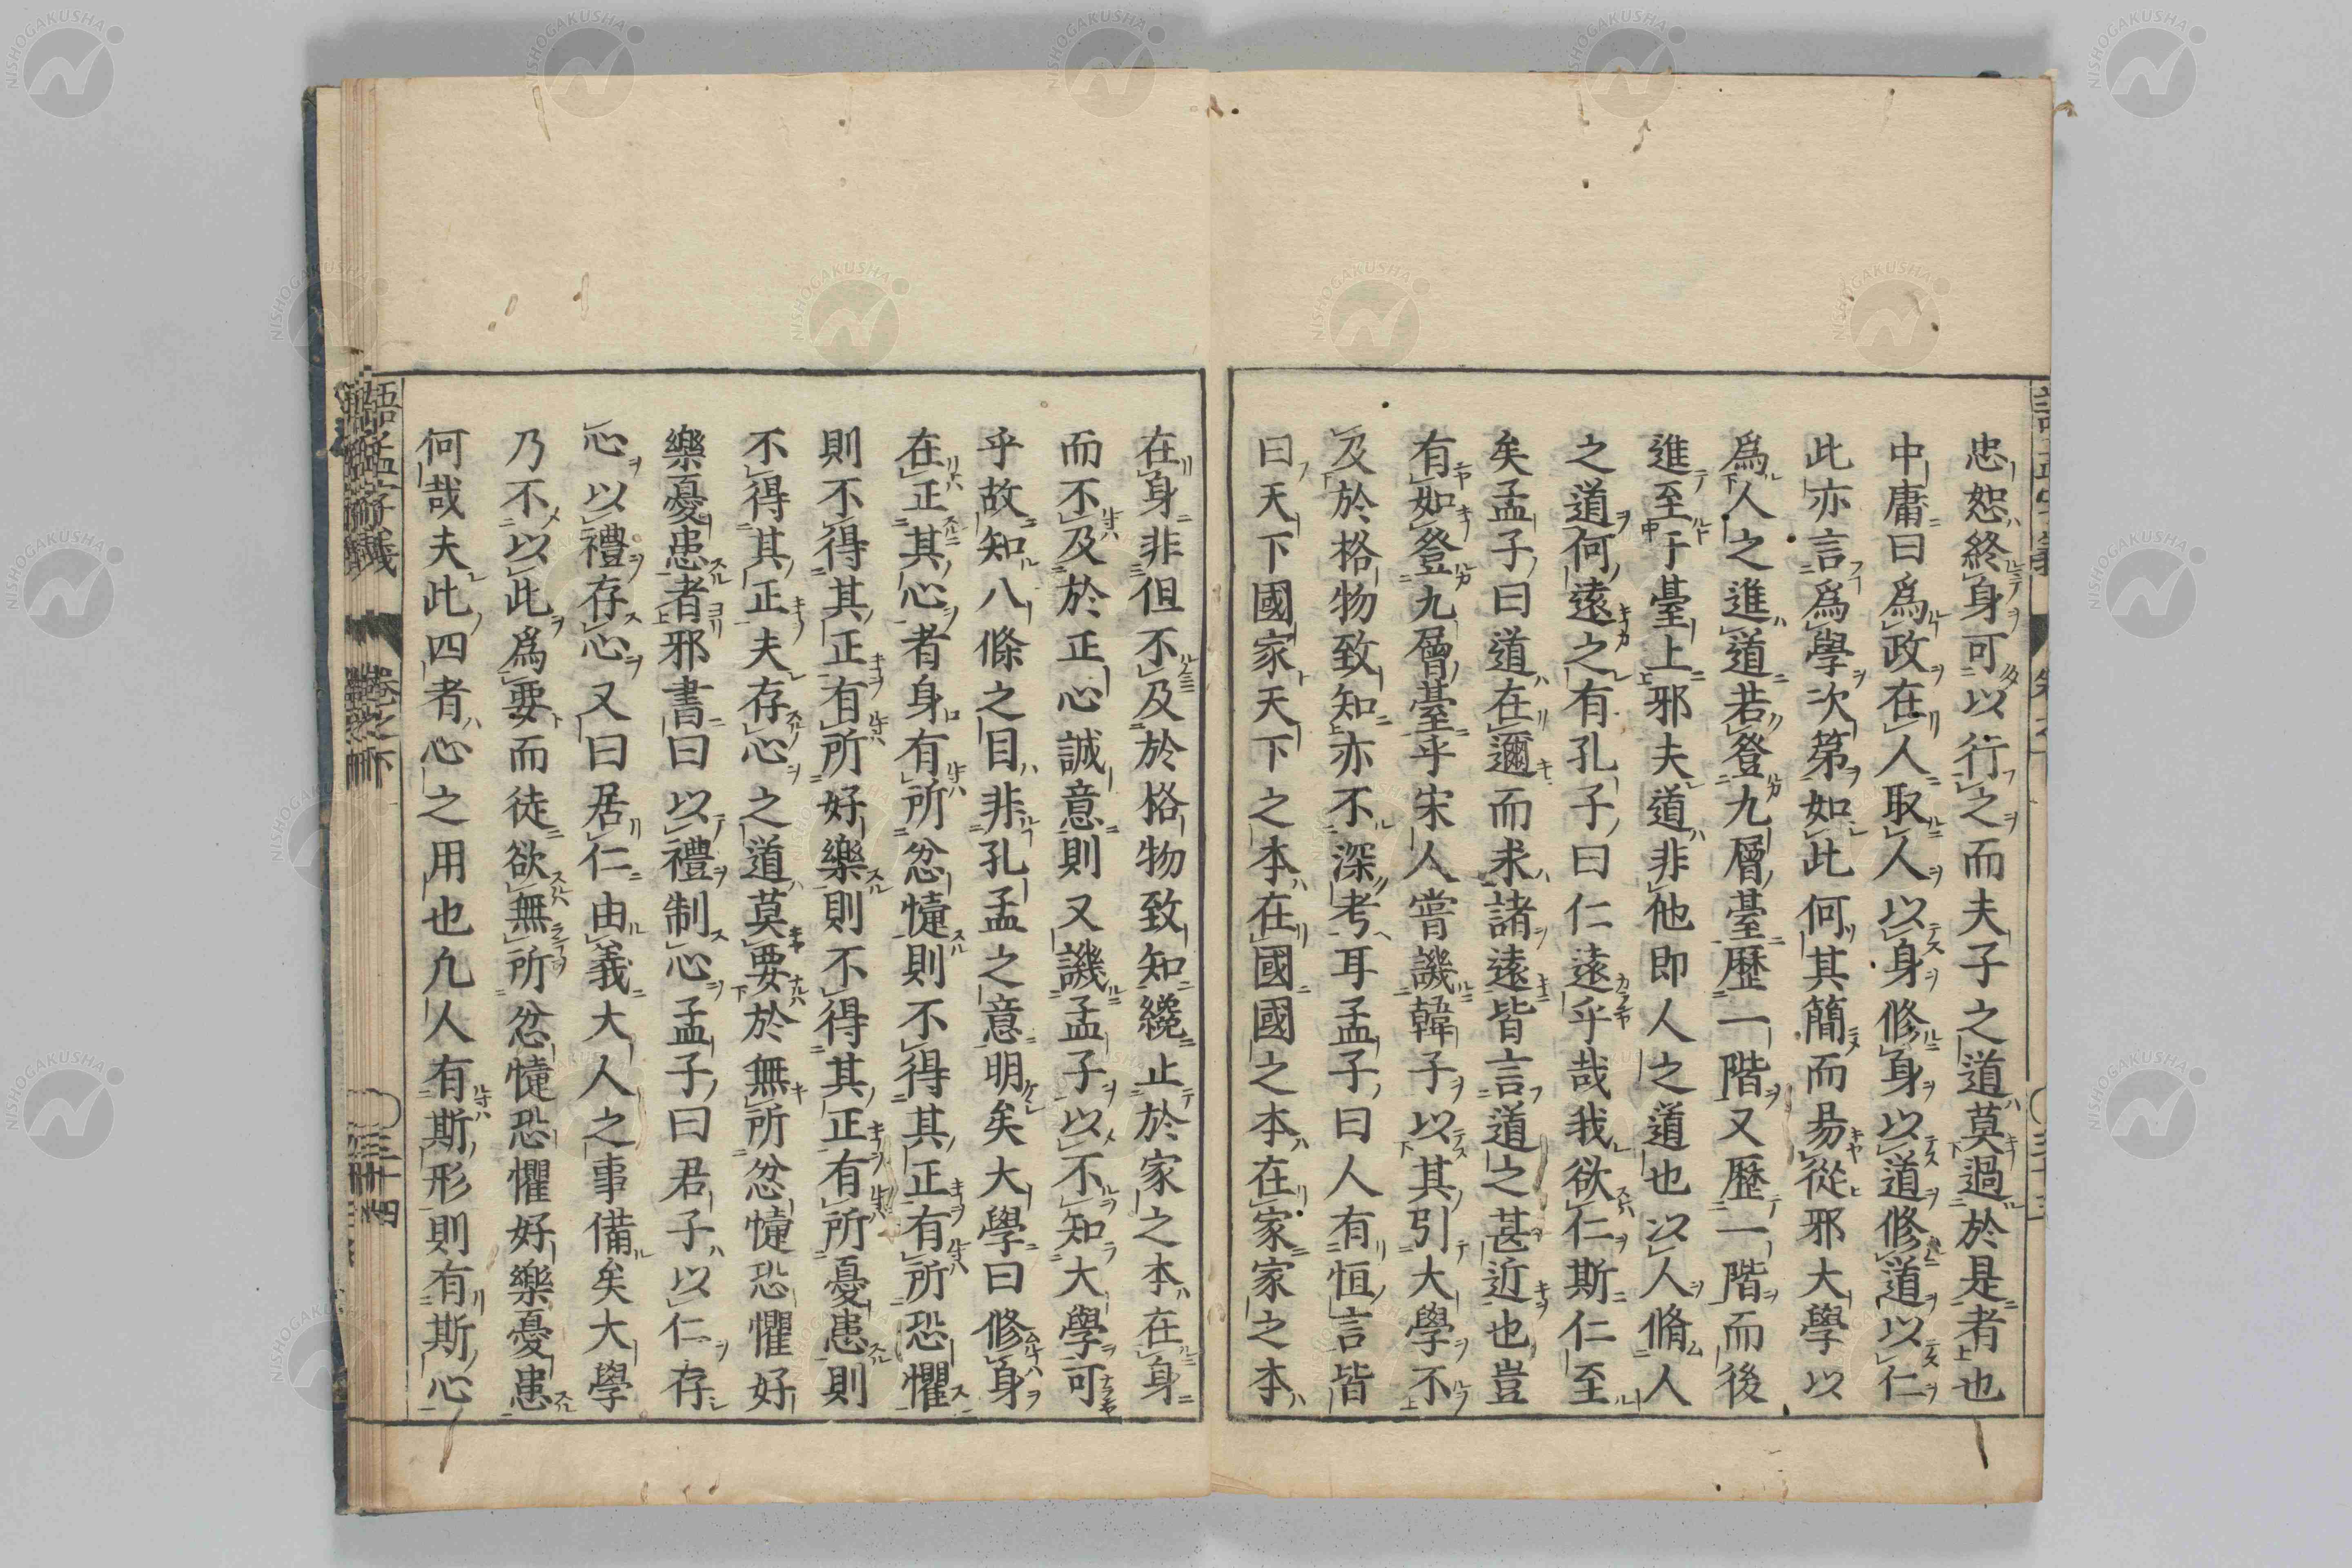 忠恕終身可以行之而夫子之道莫過於是者也
中庸曰爲政在人取人以身修身以道修道以仁
此亦言爲學次第如此何其簡而易從邪大學以
爲人之進道若登九層臺歷一階又歷一階而後
進至于臺上邪夫道非他即人之道也以人脩人
之道何遠之有孔子曰仁遠乎哉我欲仁斯仁至
矣孟子曰道在邇而求諸遠皆言道之甚近也豈
有如登九層臺乎宋人嘗譏韓子以其引大學不
及於格物致知亦不深考耳孟子曰人有恒言皆
曰天下國家天下之本在國國之本在家家之本
在身非但不及於格物致知纔止於家之本在身
而不及於正心誠意則又譏孟子以不知大學可
乎故知八條之目非孔孟之意明矣大學曰修身
在正其心者身有所忿懥則不得其正有所恐懼
則不得其正有所好樂則不得其正有所憂患則
不得其正夫存心之道莫要於無所忿懥恐懼好
樂憂患者邪書曰以禮制心孟子曰君子以仁存
心以禮存心又曰居仁由義大人之事備矣大學
乃不以此爲要而徒欲無所忿懥恐懼好樂憂患
何哉夫此四者心之用也凢人有斯形則有斯心
語孟字義 卷之下 三十四
NISHOGAKUSHA